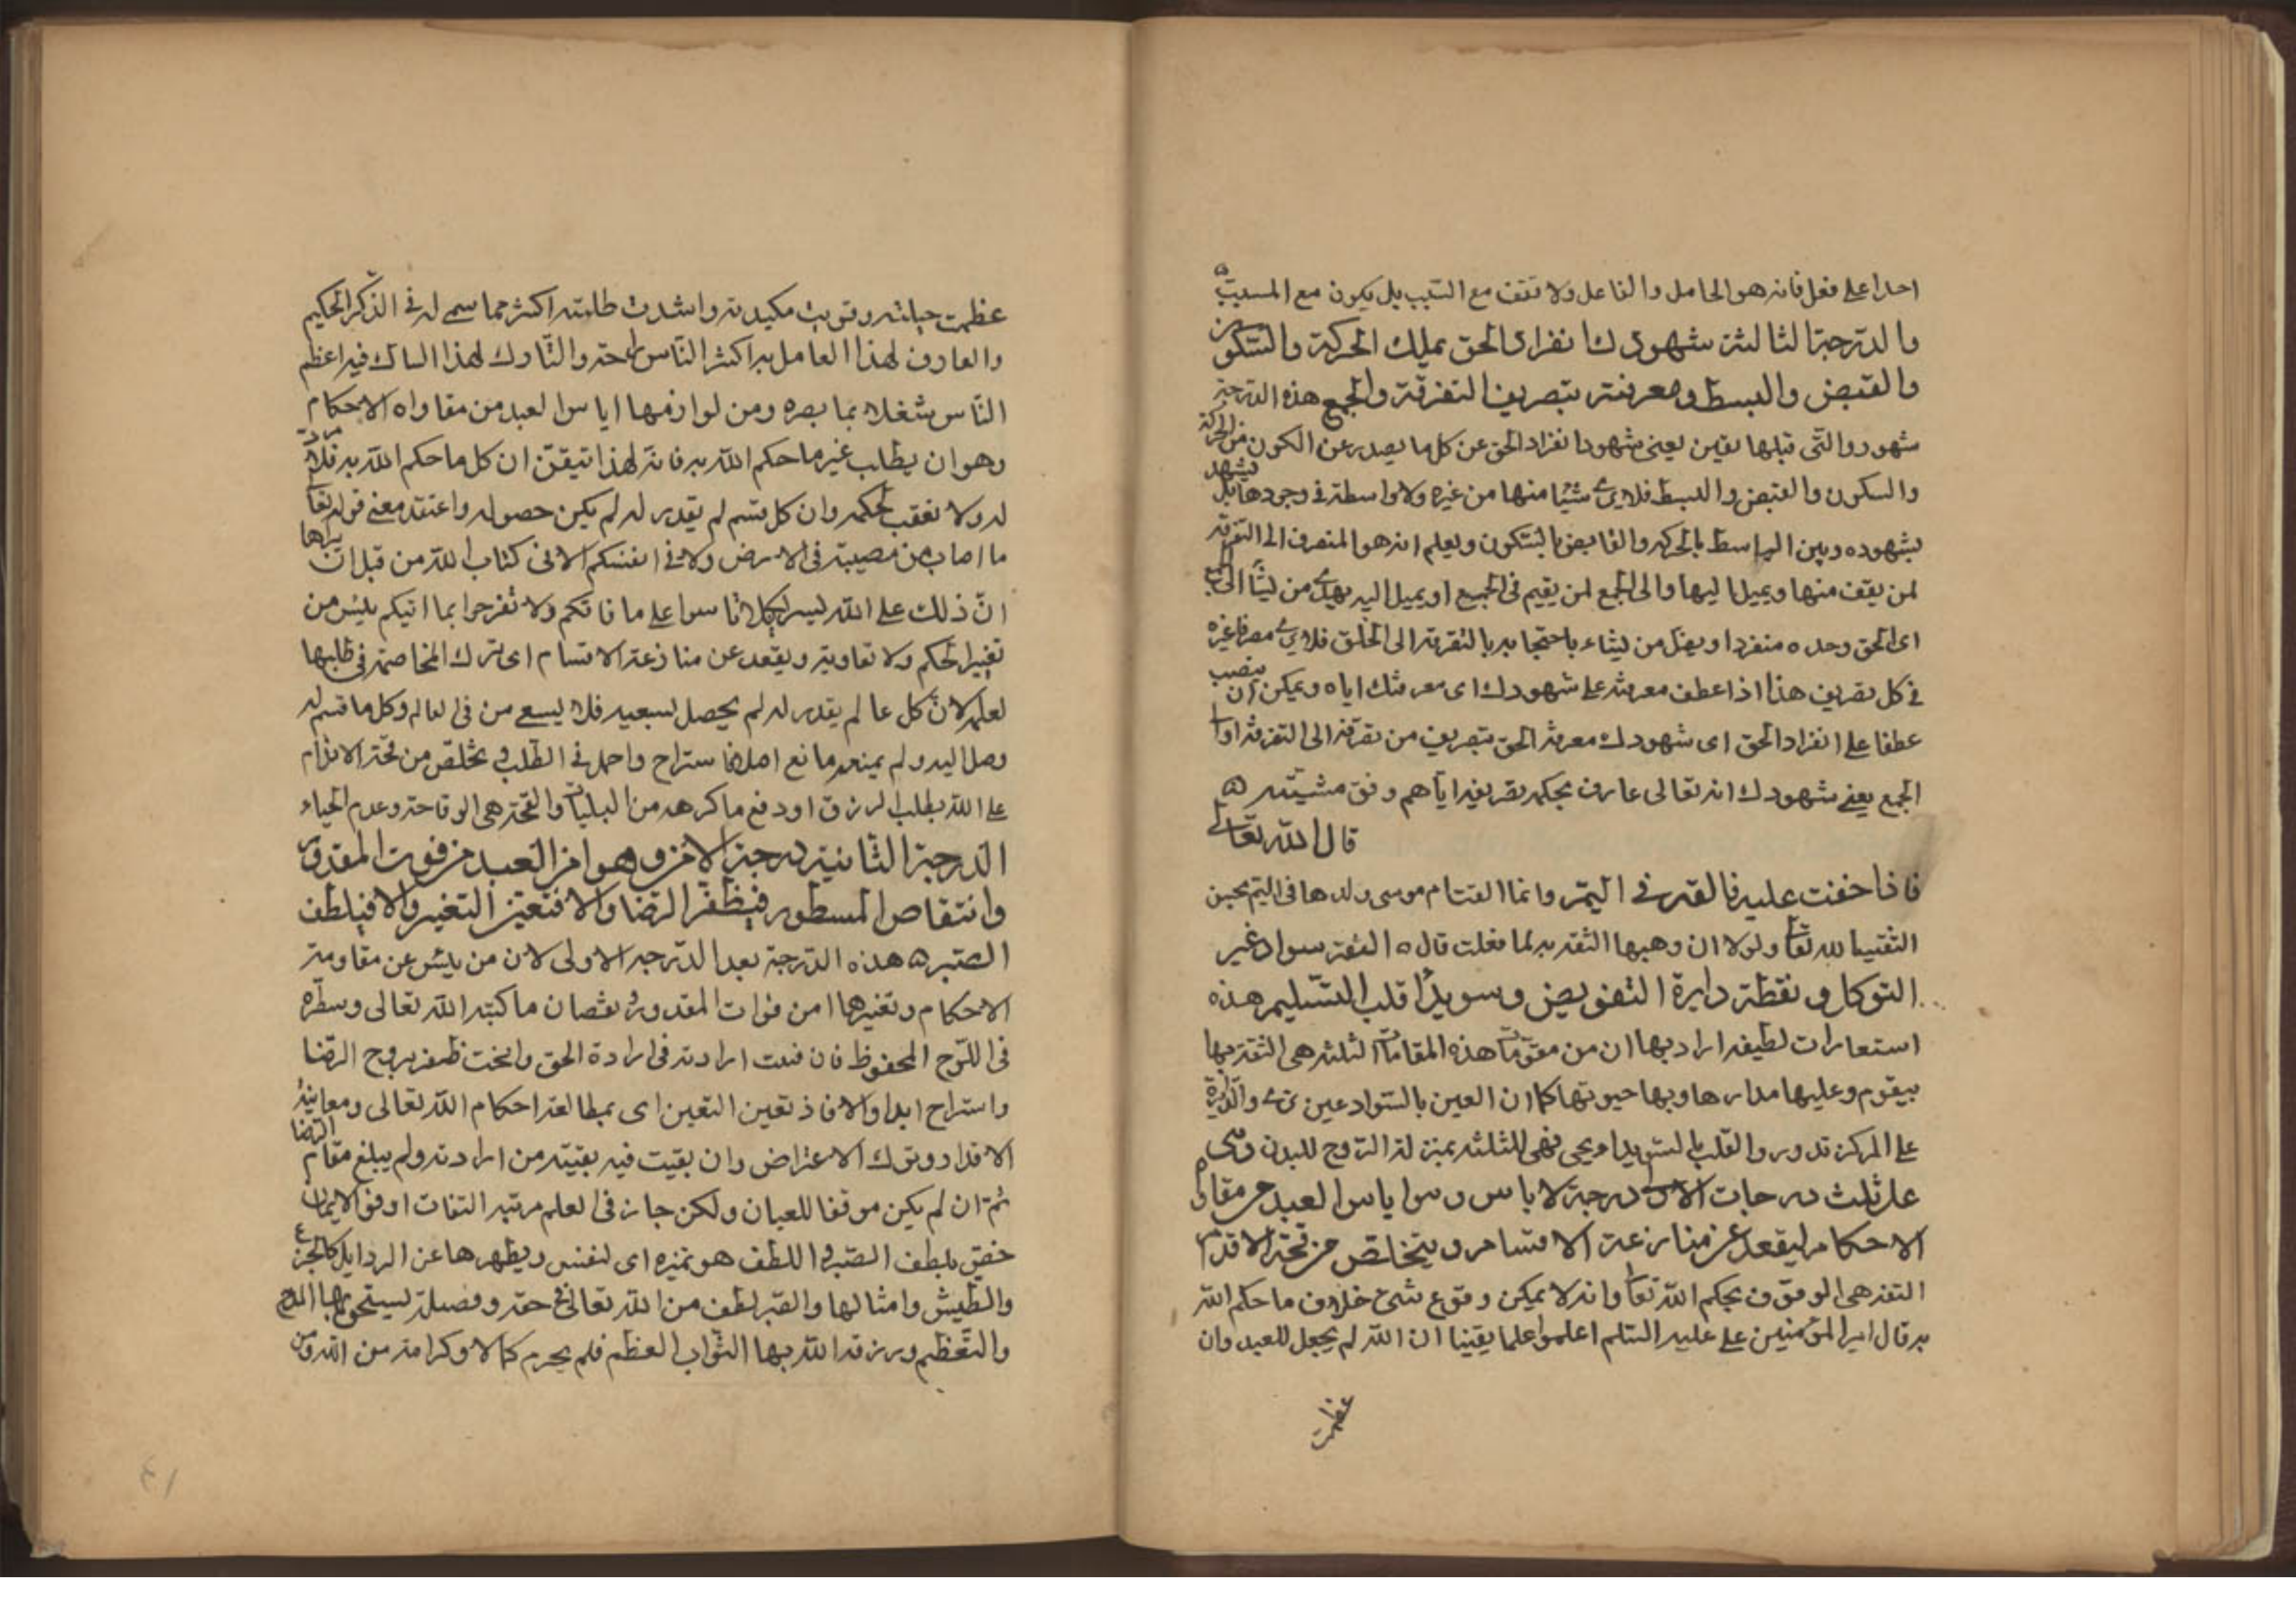 احدا على فعل فانه هو الحامل والفاعل ولا تقف مع السبب بل يكون مع المسبب ه
والدرجة الثالثة شهودك انفراد الحق بملك الحركة والسكون
والقبض والبسط ومعرفته بتصريف التفرقة والجمع هذه الدرجة
شهود والتى قبلها يقين يعنى شهود انفراد الحق عن كل ما يصدر عن الكون من الحركة
والسكون والقبض والبسط فلا يرى شيئا منها من غيره ولا واسطة فى وجودها بل يشهد
بشهوده وبين الباسط بالحركة والقابض بالسكون ويعلم انه هو المتصرف الى التفرقة
لمن يقف منها ويميل اليها والى الجمع لمن يقيم فى الجمع او يميل اليه يهدى من يشاء الى
اى الحق وحده منفردا ويضل من يشاء باحتجابه بالتفرقة الى الخلق فلا يرى مصرفا غيره
فى كل تصريف هذا اذا عطف معرفته على شهودك اى معرفتك اياه ويمكن ان ينصب
عطفا على انفراد الحق اى شهودك معرفة الحق بتصريف من تفرقة الى التفرقة او
الجمع يعنى شهودك انه تعالى عارف بحكمه تصريفه اياهم وفق مشيته ه
قال الله تعالى
فاذا خفت عليه فالقيه فى اليم وانما القت ام موسى ولدها فى اليم بحسن
الثقة بالله تعا ولولا ان وهبها الثقة به لما فعلت قال ه الثقة سواد عين
التوكل ونقطة دايرة التفويض وسويدا قلب التسليم هذه
استعارات لطيفه اراد بها ان من مقومات هذه المقامات الثلثه هى الثقة بها
يقوم وعليها مدارها وبها حيوتها كما ان العين بالسواد عين ترى والدايرة
على المركز تدور والقلب بالسويداء يحيى فهى للثلثه بمنزلة الروح للبدن وهى
على ثلث درجات الاولى درجة الاياس وهو اياس العبد من مقاواة
الاحكام ليقعد عن منازعة الاقسام وليتخلص من قحة الاقدام
الثقة هى الوقوف بحكم الله تعا وانه لا يمكن وقوع شئ خلاف ما حكم الله
به قال امير المؤمنين على عليه السلم اعلموا علما يقينا ان الله لم يجعل للعبد وان
عظمت
عظمت حيلته وقويت مكيدته واشتدت طلبته اكثر مما سمى له فى الذكر الحكيم
والعارف لهذا العامل به اكثر الناس راحة والتارك لهذا الشاك فيه اعظم
الناس شغلا بما يضره ومن لوازمها اياس العبد من مقاواة الاحكام
وهو ان يطلب غير ما حكم الله به فانه لهذا تيقن ان كل ما حكم الله به فلا مرد
له ولا تعقب لحكمه وان كل قسم لم يقدر له لم يكن حصوله واعتقد معنى قوله تعا
ما اصاب من مصيبة فى الارض ولا فى انفسكم الا فى كتاب الله من قبل ان نبراها
ان ذلك على الله يسير لكيلا تاسوا على ما فاتكم ولا تفرحوا بما اتيكم يئس من
تغيير الحكم ولا تقاويه ويقعد عن منازعة الاقسام اى ترك المخاصمة فى طلبها
لعلمه لان كل ما لم يقدر له لم يحصل بسعيه فلا يسعى من فى العالم وكل ما قسم له
وصل اليه ولم يمنعه مانع اصلا فاستراح واجمل فى الطلب وتخلص من قحة الاقدام
على الله بطلب الرزق او دفع ما كرهه من البليات والقحة هى الوقاحة وعدم الحياء
الدرجة الثانية درجة الامن وهو امن العبد من فوت المقدور
وانتقاص المسطور فيظفر الرضا والا فبعين اليقين والا فبلطف
الصبر ه هذه الدرجة بعد الدرجة الاولى لان من يئس عن مقاومة
الاحكام وتغيرها امن فوات المقدور ونقصان ما كتبه الله تعالى وسطره
فى اللوح المحفوظ فان فنت ارادته فى ارادة الحق وانمحت ظفر بروح الرضا
واستراح ابدا والا فاذ بعين اليقين اى بمطالعة احكام الله تعالى ومعاينة
الاقدار وترك الاعتراض وان بقيت فيه بقية من ارادته ولم يبلغ مقام الرضا
ثم ان لم يكن موقفا للعيان ولكن جاز فى العلم مرتبة الثقات اوفق الايمان
بلطف الصبر واللطف هو تميزه اى لنفس ويطهرها عن الرذايل كالجزع
والطيش وامثالها والصبر لطف من الله تعالى فى حقه وفضيلة ليستحق بها المدح
والتعظيم ورزقه الله بها الثواب العظيم فلم يحرم كمالا وكرامة من الله ومن
٤١